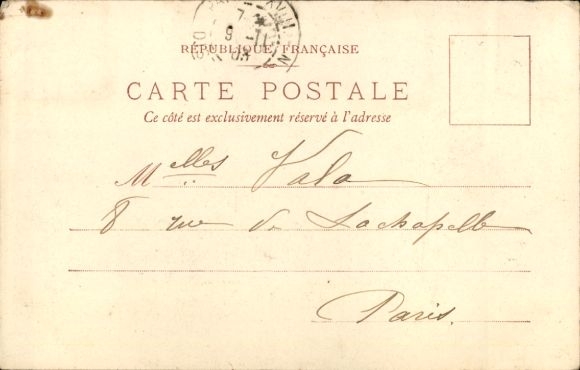 RÉPUBLIQUE FRANÇAISE
CARTE POSTALE
Ce côté est exclusivement réservé à l'adresse
Melles Vala
8 rue de Lachapelle
Paris.